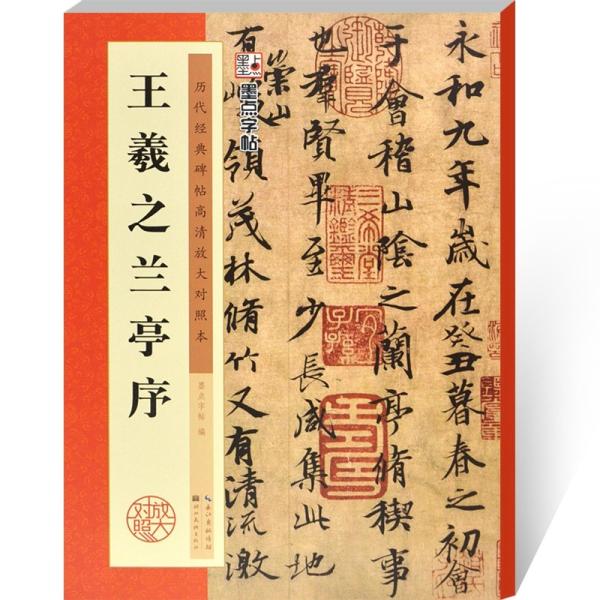 王羲之兰亭序
历代经典碑帖高清放大对照本
墨点字帖 编
放大
对照
墨点
墨点字帖
长江出版传媒
湖北美术出版社
永和九年歲在癸丑暮春之初會
于會稽山陰之蘭亭脩稧事
也羣賢畢至少長咸集此地
有崇山峻領茂林脩竹又有清流激